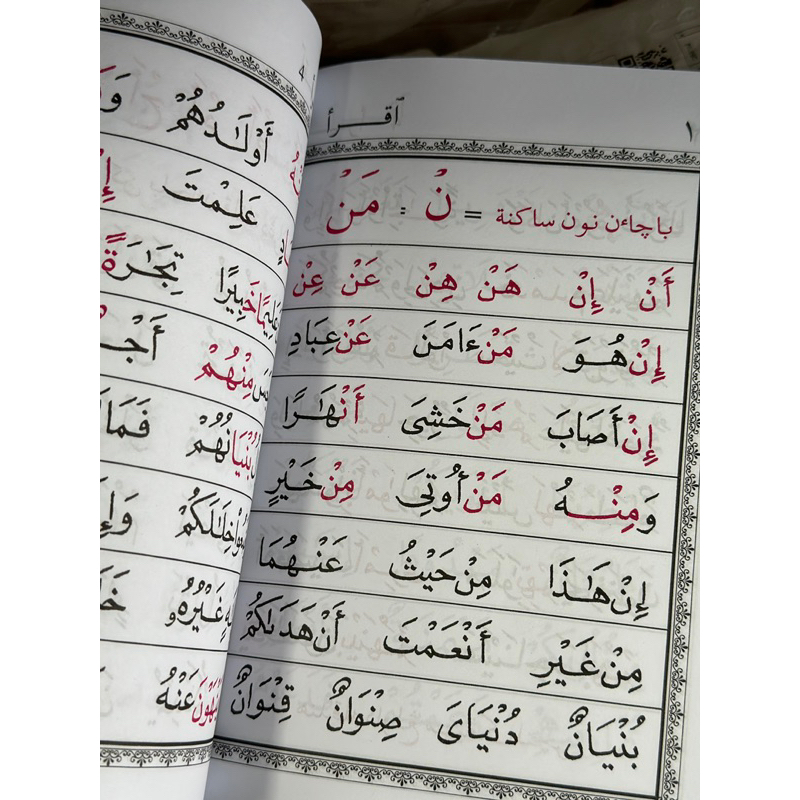 اقرأ
١
باچاءن نون ساكنة = نْ : مَنْ
أَنْ إِنْ هَنْ هِنْ عَنْ عِنْ
إِنْ هُوَ مَنْ ءَامَنَ عَنْ عِبَادِ
إِنْ أَصَابَ مَنْ خَشِىَ أَنْهَٰرًا
وَمِنْهُ مَنْ أُوتِىَ مِنْ خَيْرٍ
إِنْ هَٰذَا مِنْ حَيْثُ عَنْهُمَا
مِنْ غَيْرِ أَنْعَمْتَ أَنْ هَدَىٰكُمْ
بُنْيَانٌ دُنْيَاىَ صِنْوَانٌ قِنْوَانٌ
4
أَوْلَٰدُهُمْ
عَلِمْتَ
خَبِيرًا تِجَٰرَةً
مِنْهُمْ
بُنْيَانُهُمْ
خِلَٰلَكُمْ
غَيْرُهُۥ
عَنْهُ